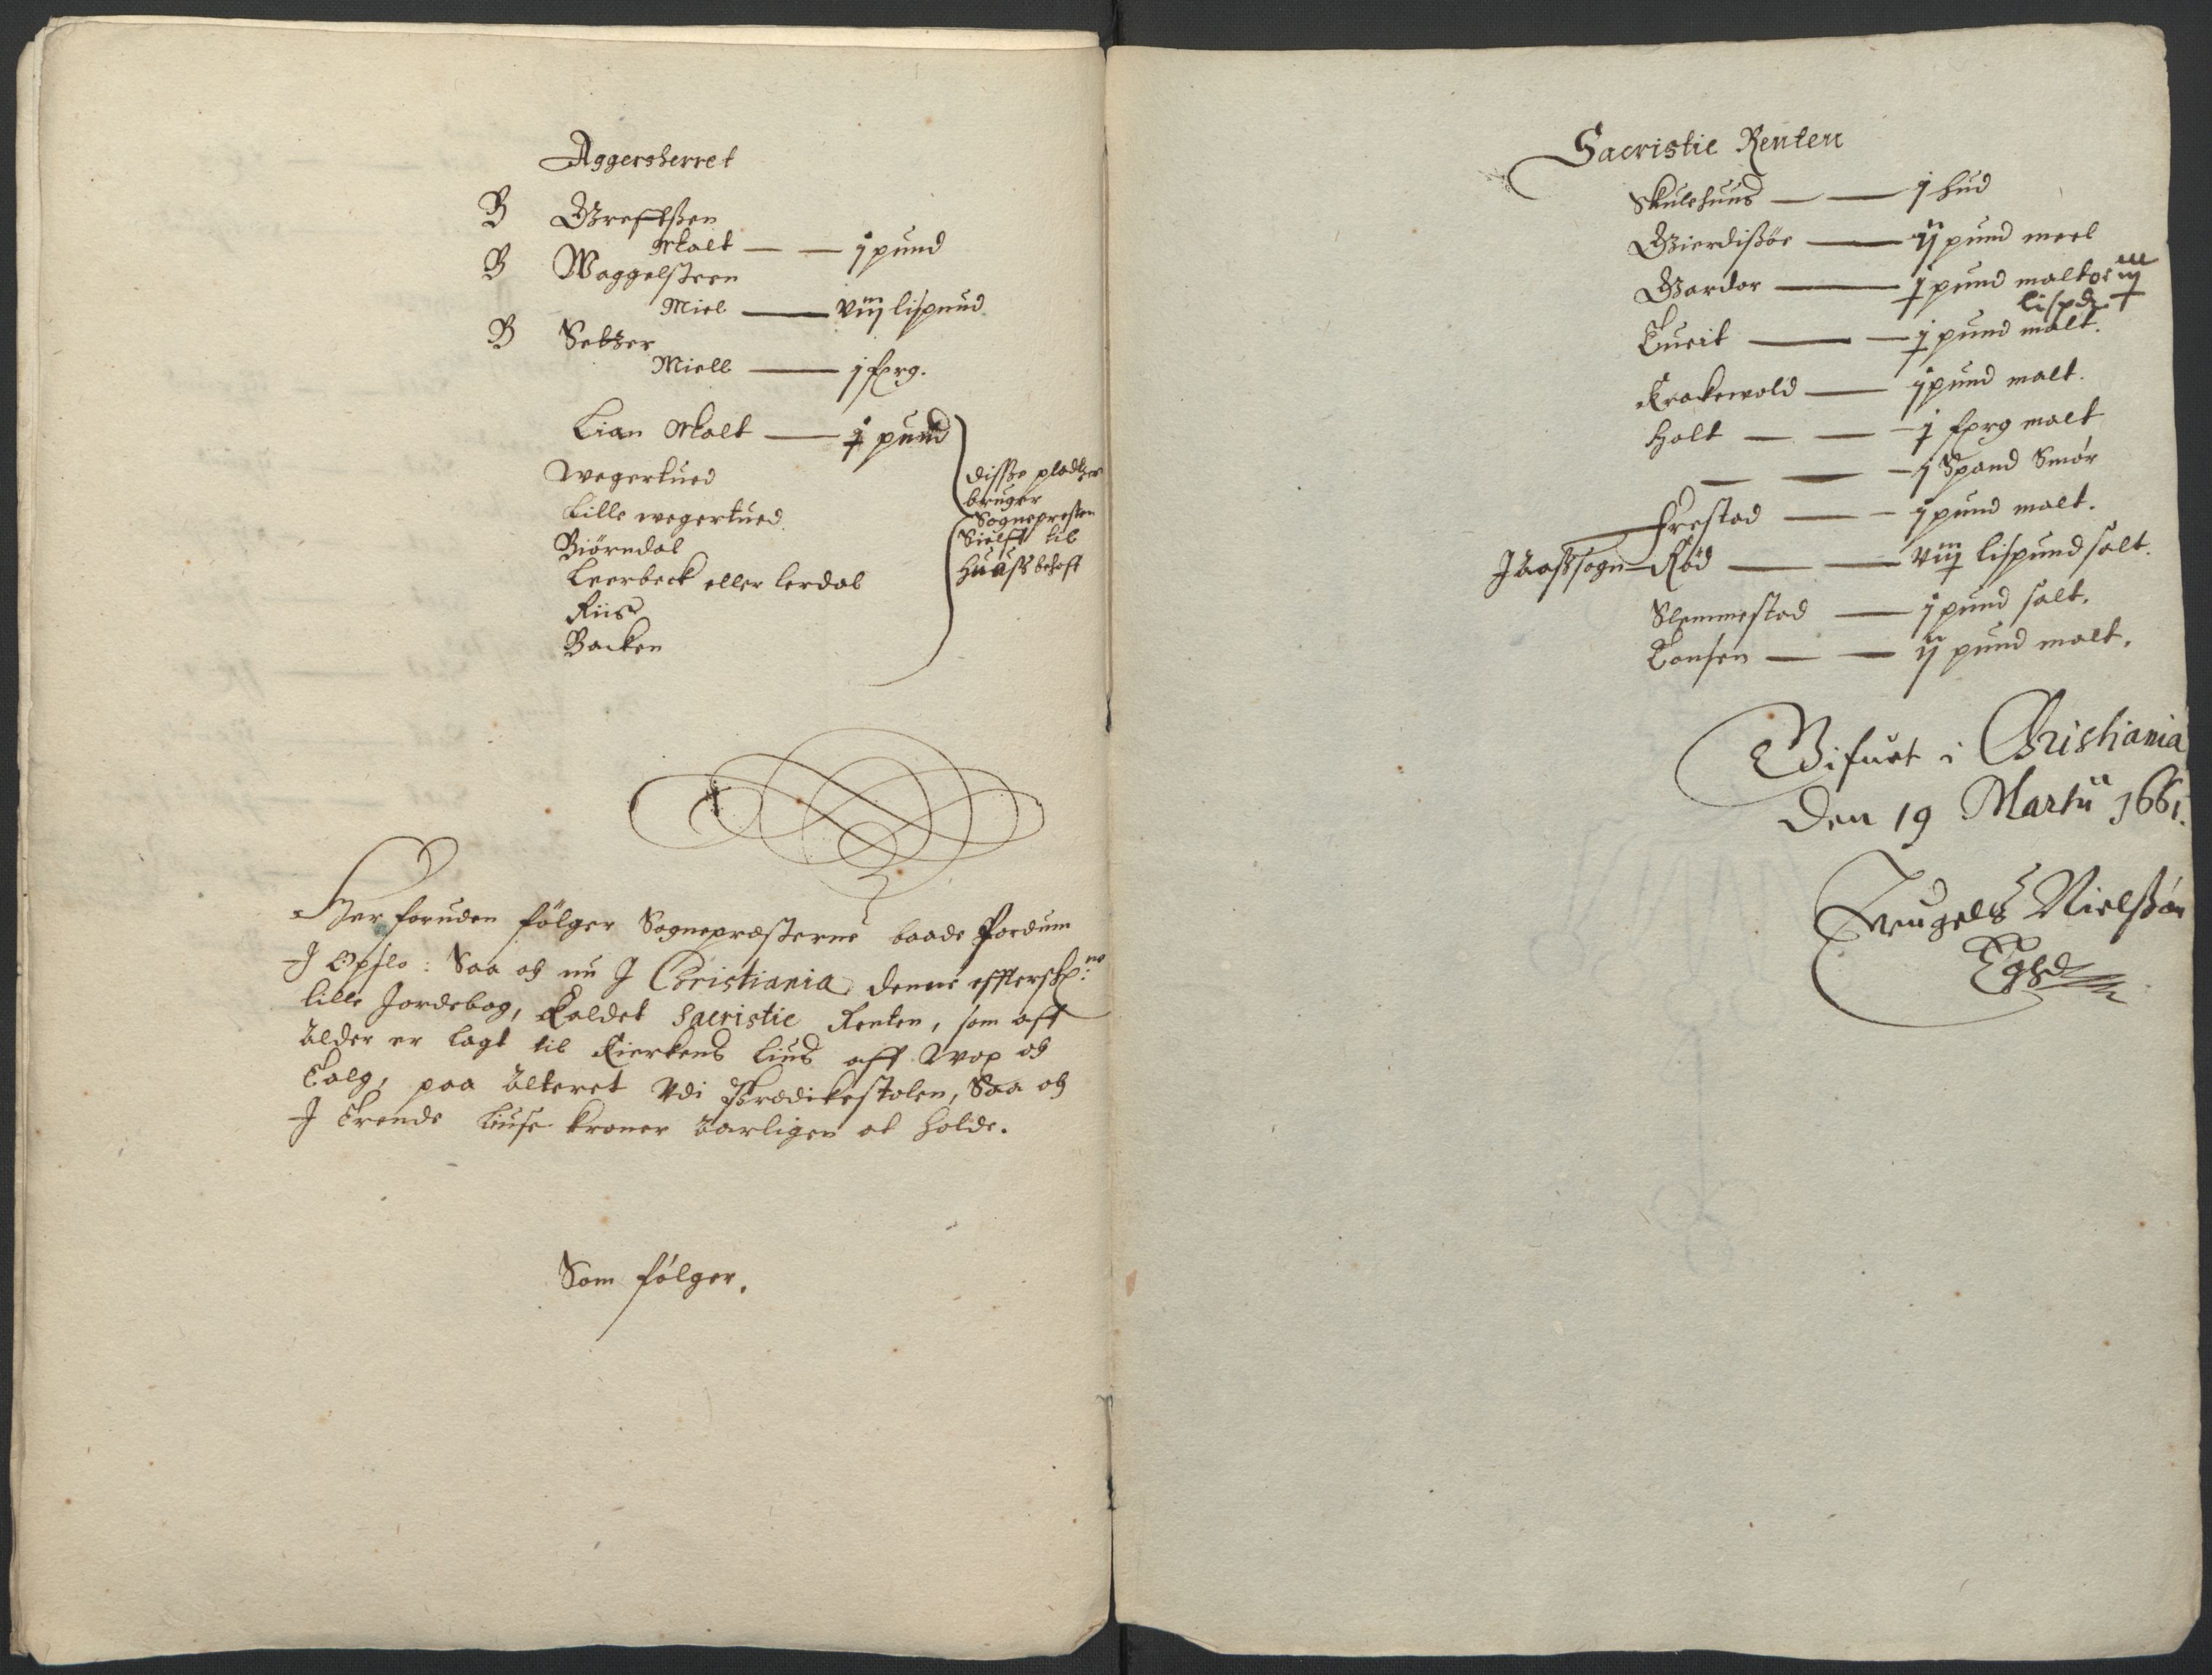 Aggersherret
B Greffsßen
Malt — — j pund
B Waggelsteen
Miel — viij lispund
B Setzer
Miell — j fxrg.
Lian Malt — j pund
Wegertued
Lille wegertued
Biørndal
Leerbeck eller lerdal
Riis
Backen
disße pladtzer
bruger
Sognepresten
Sielff til
Huuß behoff
Her foruden følger Sognepræsterne baade Fordum
J Opslo: Saa och nu J Christiania denne
lille Jordebog, Kaldet Sacristie Renten, som aff
alder er lagt til Kierkens lius aff wox och
Talg, paa alteret vdi Prædikestolen, Saa och
J Trende liuse kroner aarligen at holde.
Som følger.
Sacristie Renten
Skulehuus — — j hud
Gierdisøe — ij pund meel
Gardor — j pund malt oc iij
lispd
Tueit — — j pund malt.
Krokewold — j pund malt.
Holt — — j fxrg malt
— — j Spand Smør
Frestad — — j pund malt.
Jaaßsogn Rød — — viij lispund salt.
Slemmestad — j pund salt.
Tonsen — — ij pund malt.
Gifuet i Christiania
Den 19 Martii 1661.
Trugels Nielßøn